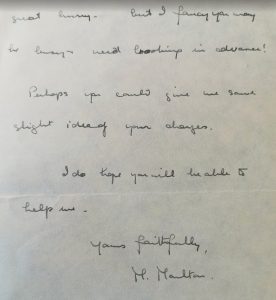 great hurry - but I fancy you may
be busy - need booking in advance!
Perhaps you could give me some
slight idea of your charges.
I do hope you will be able to
help me -
Yours faithfully,
M. Moulton.